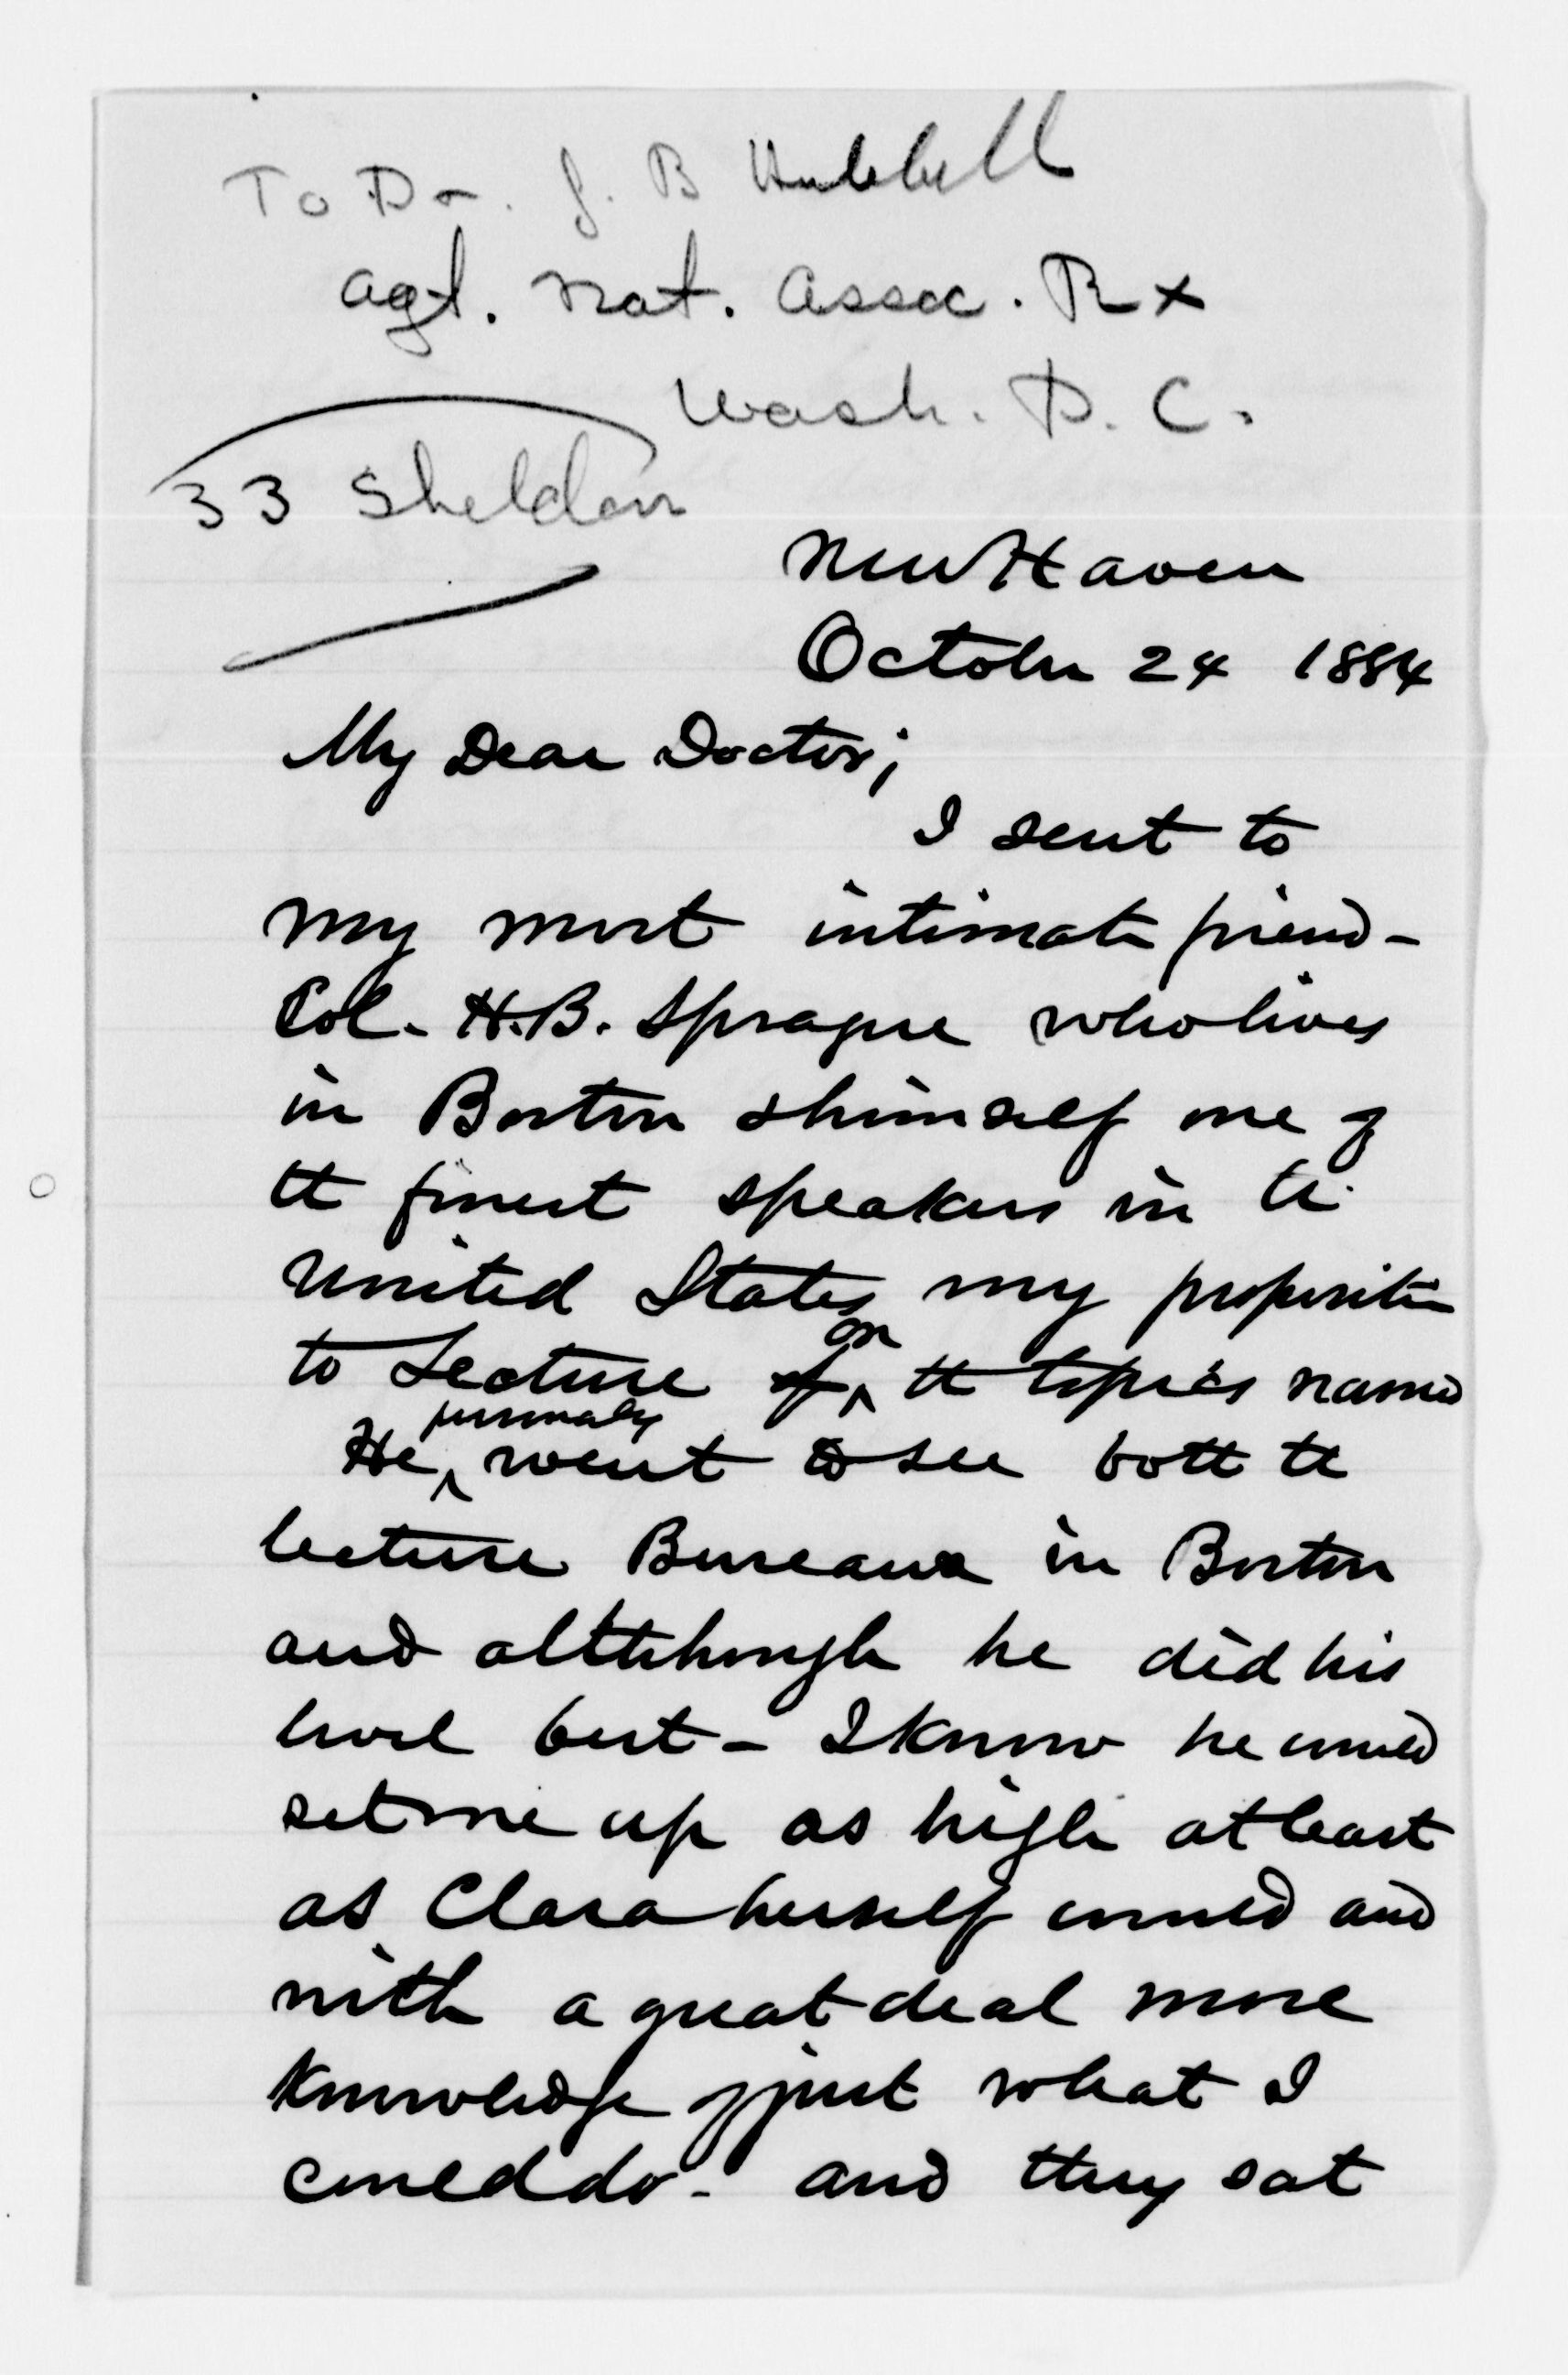 To Dr. J. B Hubbell
agt. Nat. Assoc. R x
Wash. D. C.
33 Sheldon
New Haven
October 24 1884
My Dear Doctor;
I sent to
my most intimate friend -
Col. H.B. Sprague who lives
in Boston & himself one of
the finest speakers in the
United States my proposition
to Lecture of on the topics named
He personally went to see both the
lecture Bureaux in Boston
and altthough he did his
level best - I know he could
set me up as high at least
as Clara herself could and
with a great deal more
knowledge of just what I
could do - and they sat